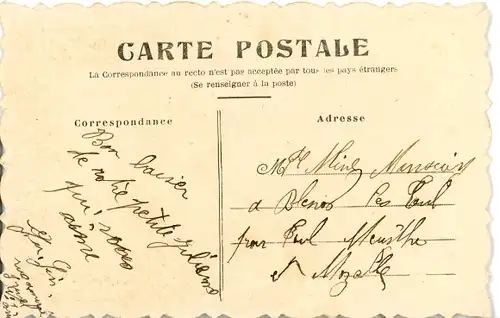 CARTE POSTALE
La Correspondance au recto n'est pas acceptée par tous les pays étrangers
(Se renseigner à la poste)
Correspondance
Bon baiser
de notre petite
qui vous
aime
Adresse
Mlle
a Blenod les Toul
par Toul Meurthe
et Mozelle